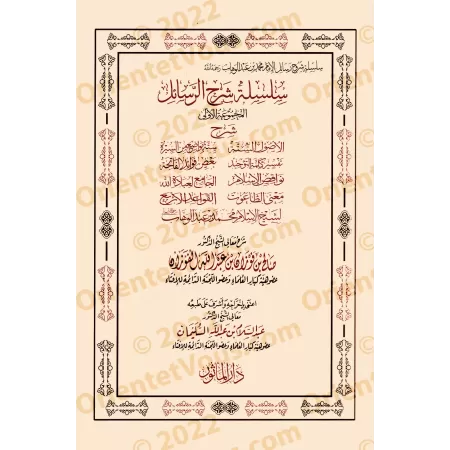 سلسلة شرح رسائل الإمام محمد بن عبد الوهاب رحمه الله
سلسلة شرح الرسائل
المجموعة الأولى
شرح
الأصول الستة ستة مواضع من السيرة
تفسير كلمة التوحيد بعض فوائد الفاتحة
نواقض الإسلام الجامع لعبادة الله
معنى الطاغوت القواعد الأربع
لشيخ الإسلام محمد بن عبد الوهاب
شرح معالي الشيخ الدكتور
صالح بن فوزان بن عبد الله الفوزان
عضو هيئة كبار العلماء وعضو اللجنة الدائمة للإفتاء
اعتنى بإخراجه وأشرف على طبعه
معالي الشيخ الدكتور
عبد السلام بن عبد الله السليمان
عضو هيئة كبار العلماء وعضو اللجنة الدائمة للإفتاء
دار المأثور
© 2022